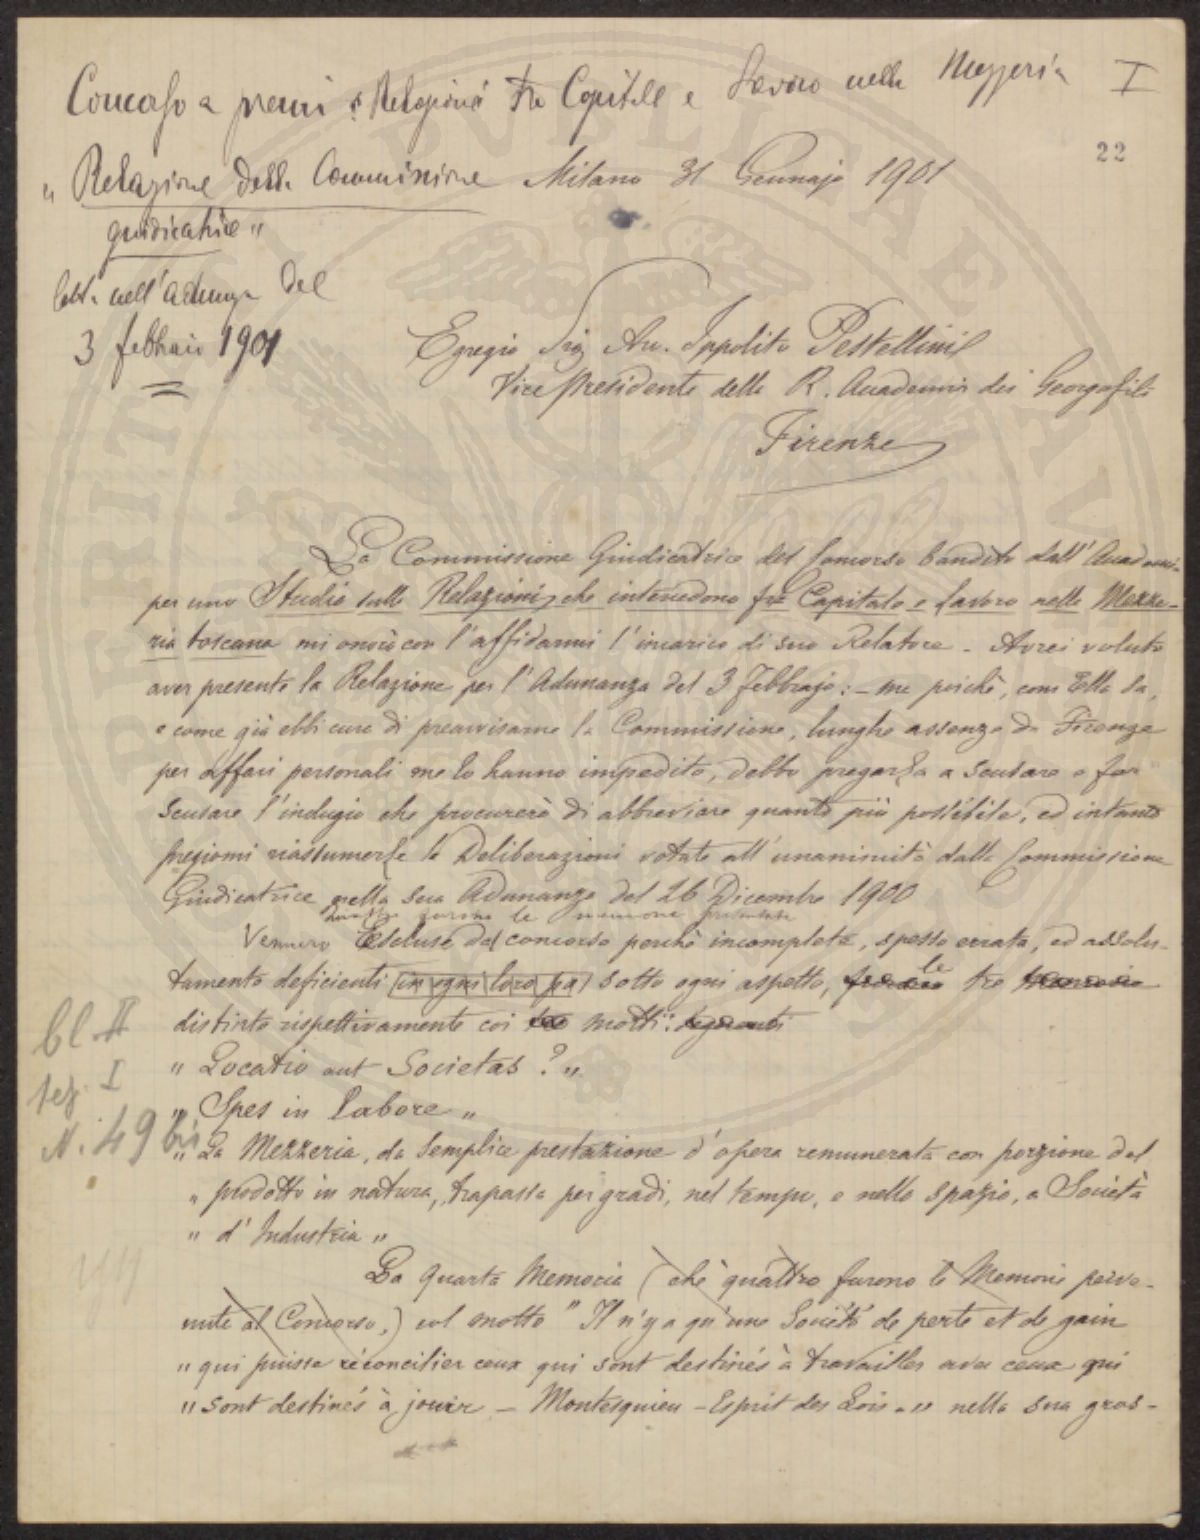 Concorso a premi : Relazioni tra Capitale e Lavoro nella Mezzeria I
22
„ Relazione della Commissione Milano 31 Gennajo 1901
giudicatrice „
letta nell'adunza del
3 febbraio 1901
Egregio Sig Avv. Ippolito Pestellini
Vice Presidente della R. Accademia dei Georgofili
Firenze
La Commissione Giudicatrice del Concorso bandito dall'Accademia
per uno Studio sulle Relazioni, che intercedono fra Capitale e Lavoro nella Mezze-
ria toscana mi onorò con l'affidarmi l'incarico di suo Relatore - Avrei voluto
aver presente la Relazione per l'Adunanza del 3 Febbrajo: - ma poichè, com Ella sa,
e come già ebbi cura di preavvisarne la Commissione, lunghe assenze da Firenze
per affari personali me lo hanno impedito, debbo pregarla a scusare e far
scusare l'indugio che procurerò di abbreviare quanto più possibile, ed intanto
pregiomi riassumerle le Deliberazioni votate all'unanimità dalla Commissione
Giudicatrice nella sua Adunanza del 26 Dicembre 1900
Quattro furono le memorie presentate
Vennero Escluse del concorso perchè incomplete, spesso errate, ed assolu-
tamente deficienti in ogni loro pa sotto ogni aspetto, le tre memorie
distinte rispettivamente coi tre motti: seguenti
„ Locatio aut Societas ? „
„ Spes in labore „
bl. II
sez. I
N. 49 bis
„ La Mezzeria, da semplice prestazione d'opera remunerata con porzione del
„ prodotto in natura, trapassa per gradi, nel tempo, e nello spazio, a Società
„ d'Industria „
La quarta Memoria (chè quattro furono le Memorie perve-
nute al Concorso,) col motto " Il n'y a qu'une Société de perte et de gain
„ qui puisse réconcilier ceux qui sont destinés à travailler avec ceux qui
„ sont destinés à jouir - Montesquieu - Esprit des Lois - „ nella sua gros-